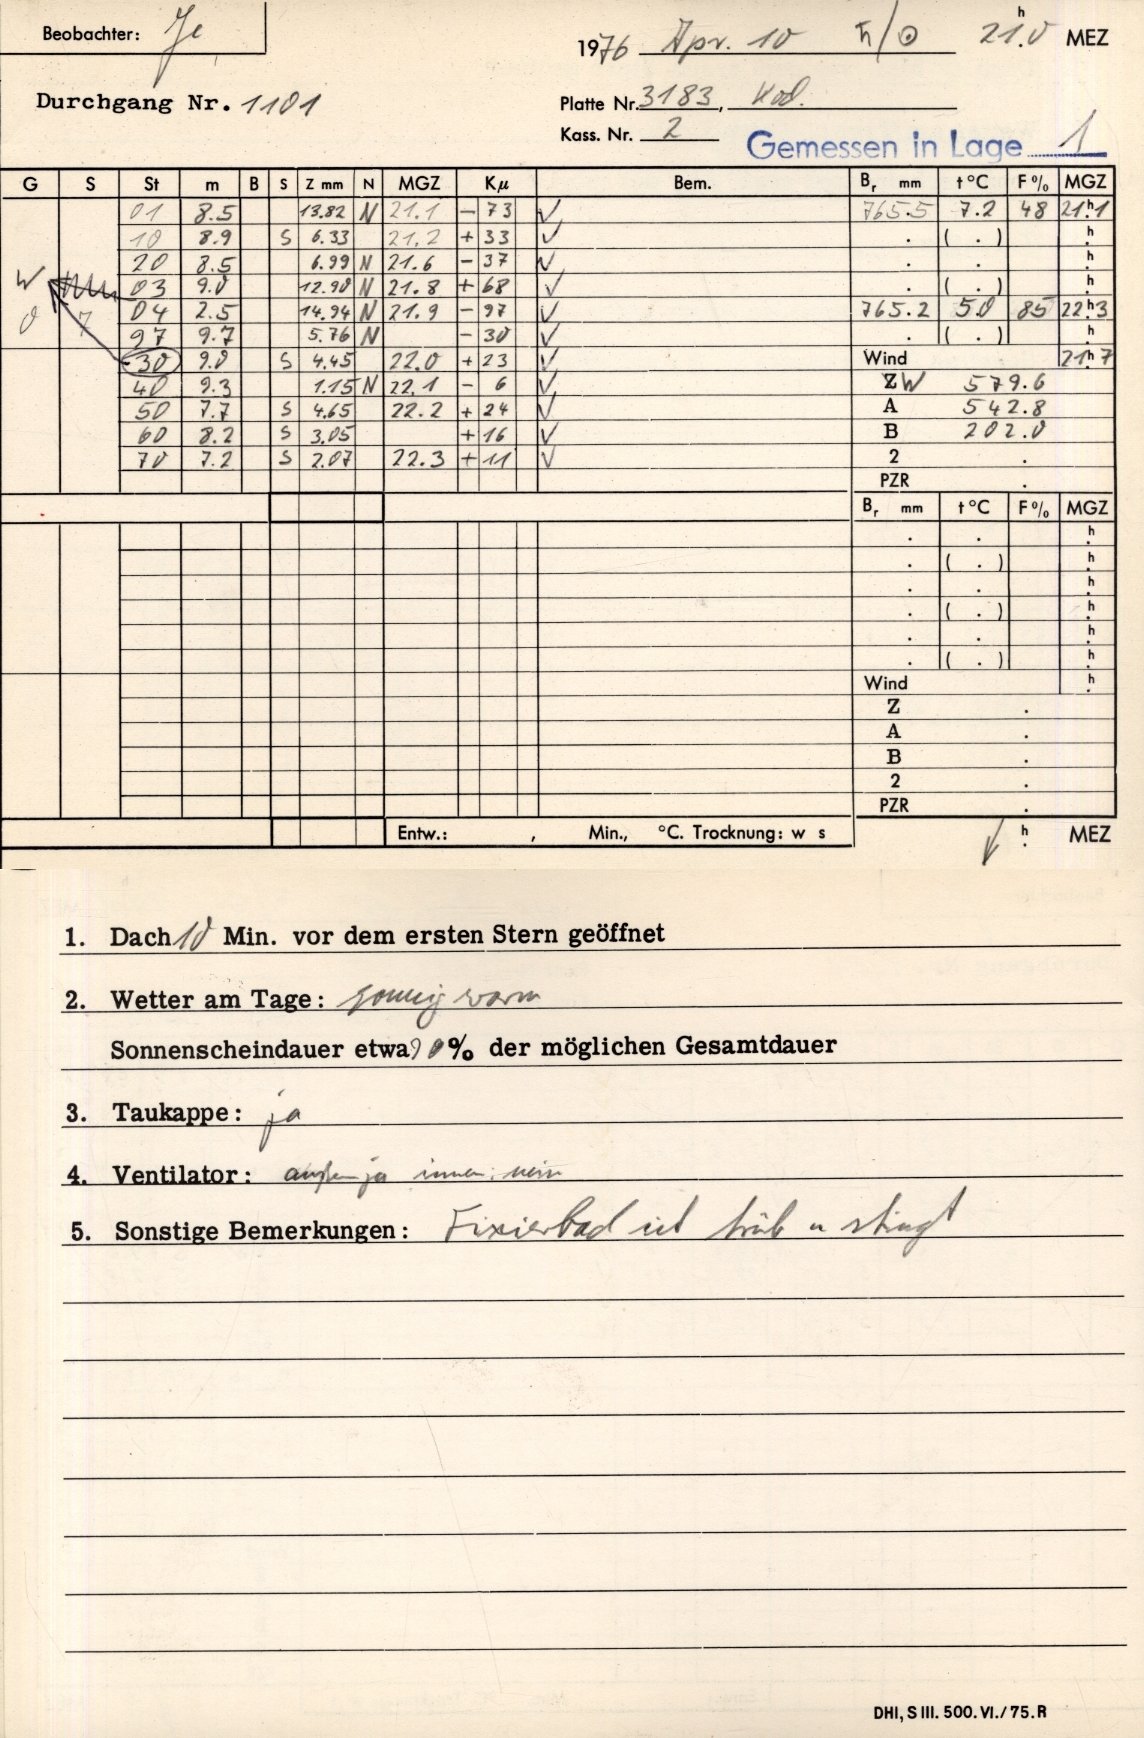 Beobachter: Je
1976 Apr. 10 ♄/⊙ 21h.0 MEZ
Durchgang Nr. 1101
Platte Nr. 3183, Kod.
Kass. Nr. 2
Gemessen in Lage 1
G S St m B S Z mm N MGZ Kμ Bem. Br mm t °C F % MGZ
01 8.5 13.82 N 21.1 − 73 ✓ 765.5 7.2 48 21h.1
10 8.9 S 6.33 21.2 + 33 ✓ . ( . ) h.
20 8.5 6.99 N 21.6 − 37 ✓ . . h.
W 03 9.0 12.90 N 21.8 + 68 ✓ . ( . ) h.
0 7 04 2.5 14.94 N 21.9 − 97 ✓ 765.2 5.0 85 22h.3
97 9.7 5.76 N − 30 ✓ . ( . ) h.
30 9.0 S 4.45 22.0 + 23 ✓ Wind 21h.7
40 9.3 1.15 N 22.1 − 6 ✓ Z W 579.6
50 7.7 S 4.65 22.2 + 24 ✓ A 542.8
60 8.2 S 3.05 + 16 ✓ B 202.0
70 7.2 S 2.07 22.3 + 11 ✓ 2 .
PZR .
Br mm t °C F % MGZ
. . h.
. ( . ) h.
. . h.
. ( . ) h.
. . h.
. ( . ) h.
Wind h.
Z .
A .
B .
2 .
PZR .
Entw.: , Min., °C. Trocknung: w s h. MEZ
1. Dach 10 Min. vor dem ersten Stern geöffnet
2. Wetter am Tage: sonnig warm
Sonnenscheindauer etwa 90% der möglichen Gesamtdauer
3. Taukappe: ja
4. Ventilator: außen ja innen: nein
5. Sonstige Bemerkungen: Fixierbad ist trüb u stinkt
DHI, S III. 500. VI./75. R